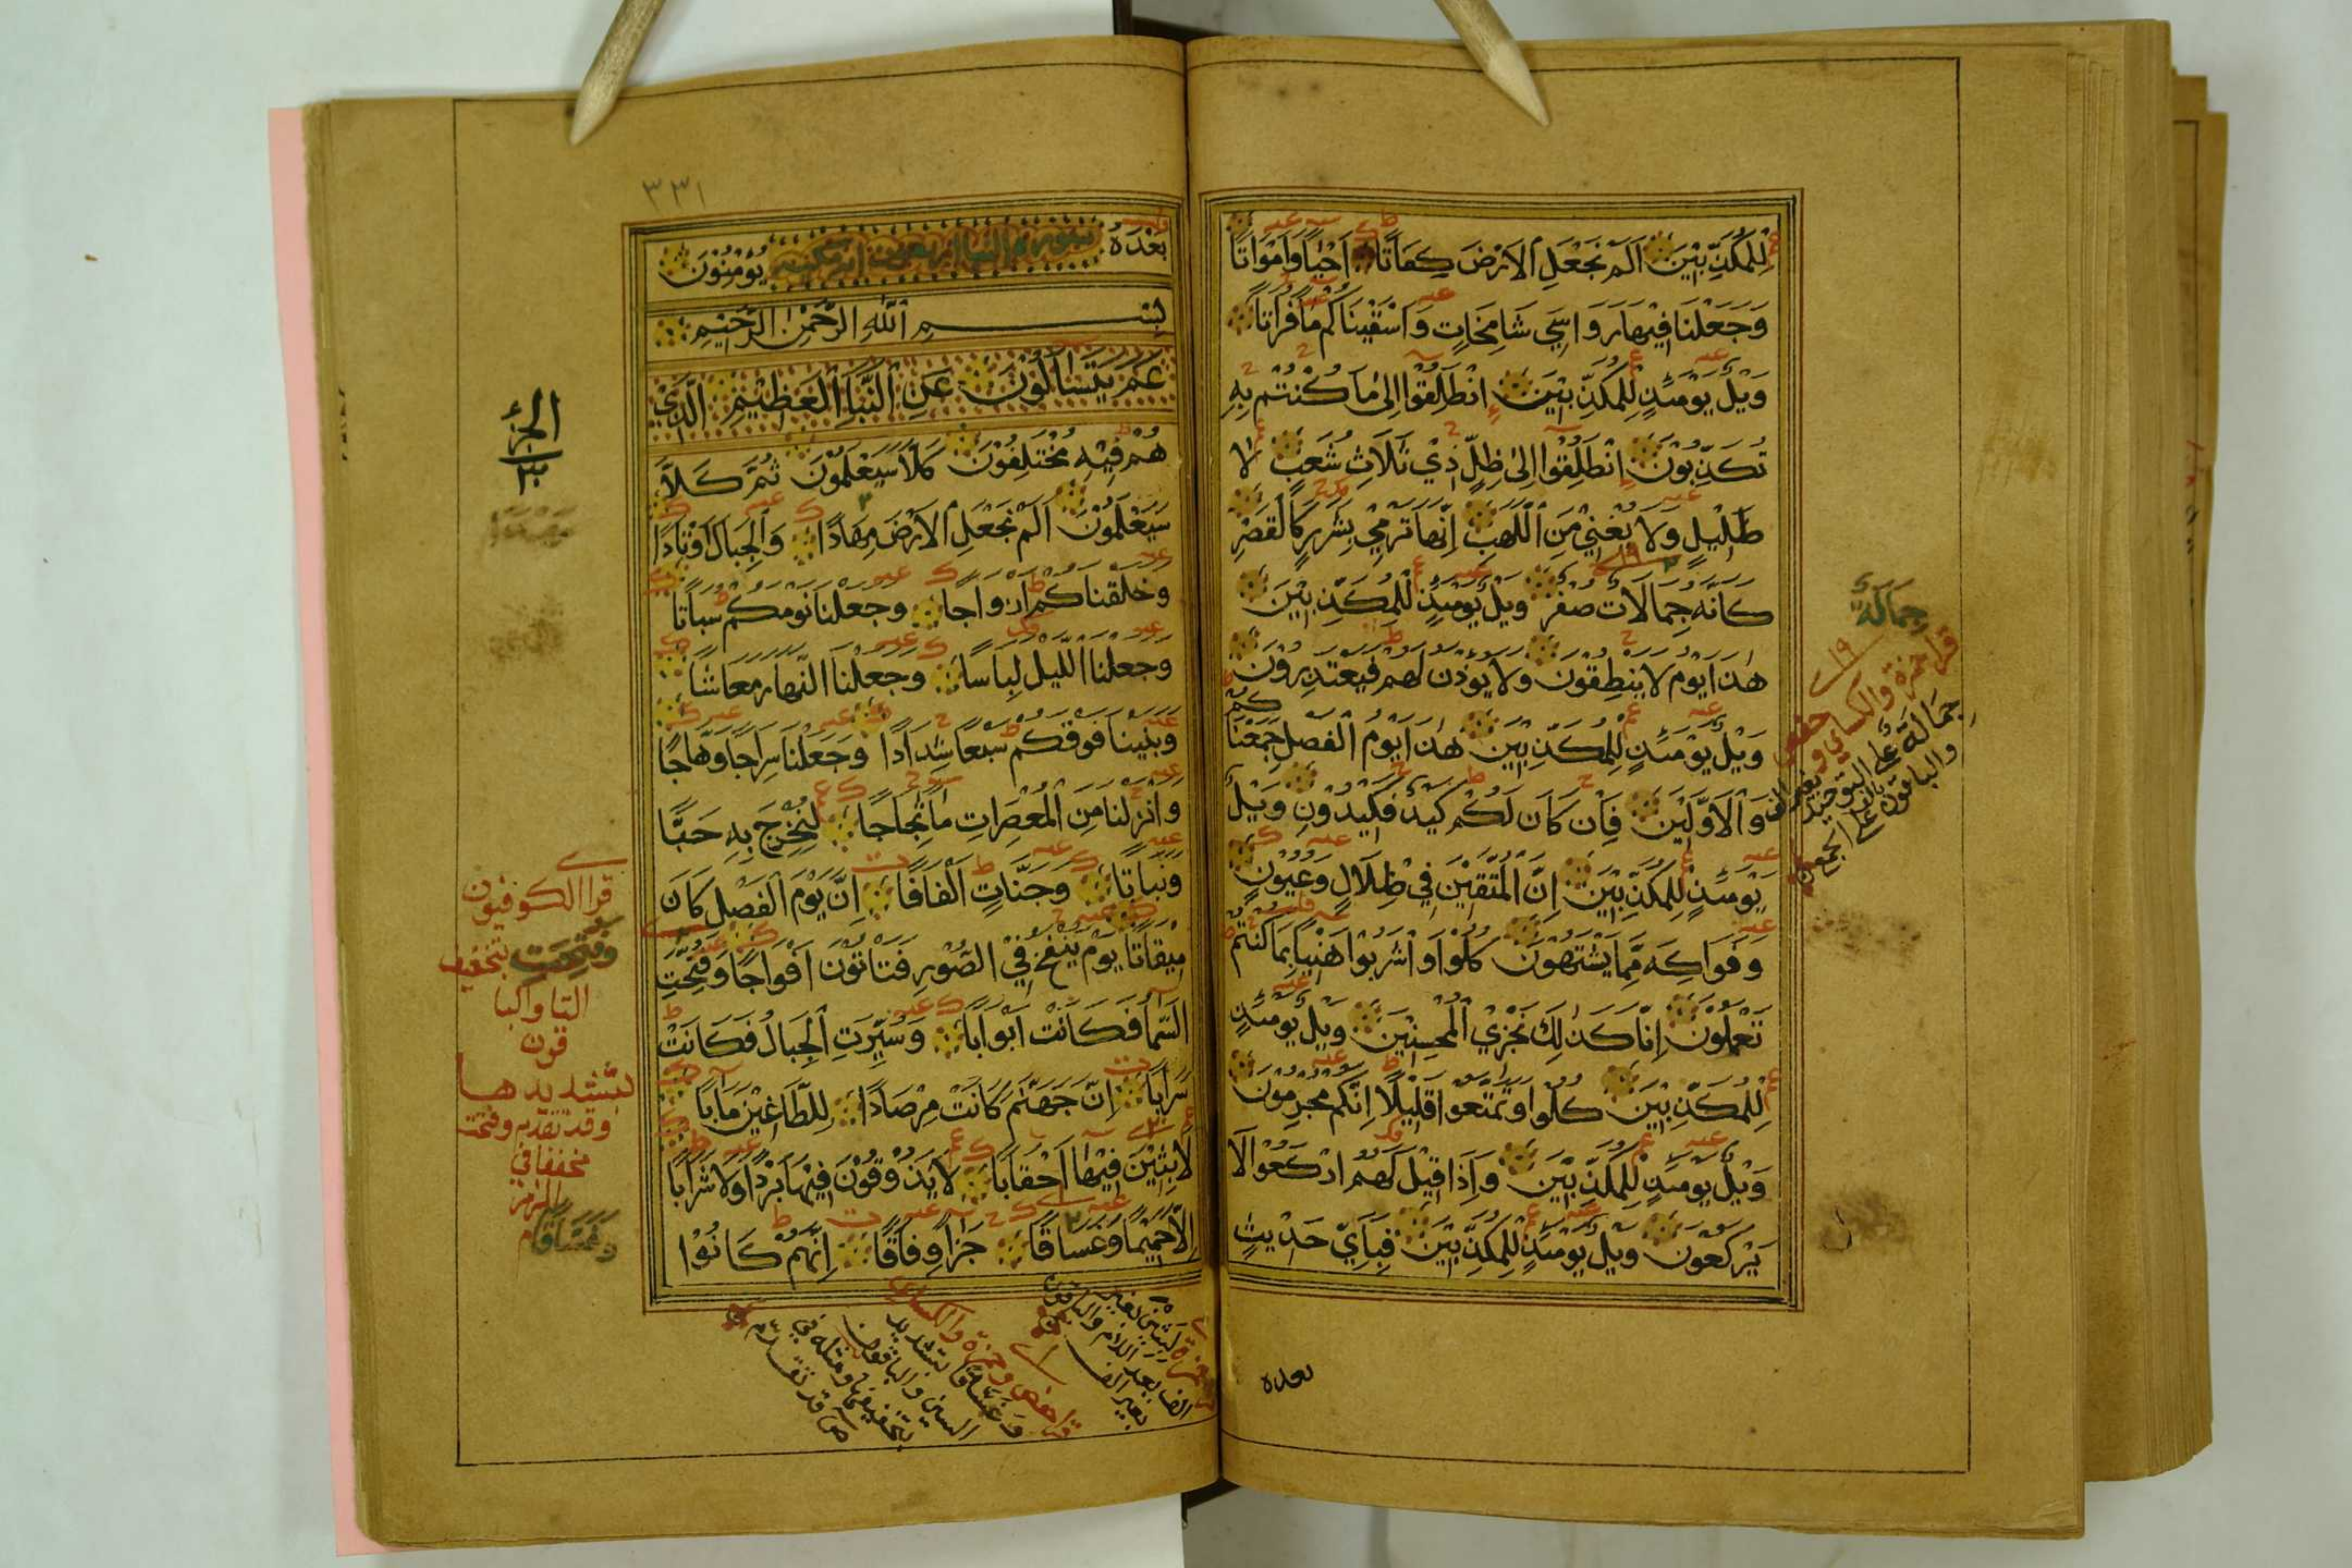 لِلْمُكَذِّبِيْنَ اَلَمْ نَجْعَلِ الْاَرْضَ كِفَاتًا اَحْيَاً وَاَمْوَاتًا
وَجَعَلْنَا فِيْهَا رَوَاسِيَ شَامِخَاتٍ وَاَسْقَيْنَاكُمْ مَاً فُرَاتًا
وَيْلٌ يَوْمَئِذٍ لِلْمُكَذِّبِيْنَ اِنْطَلِقُوْا اِلٰى مَا كُنْتُمْ بِهِ
تُكَذِّبُوْنَ اِنْطَلِقُوْا اِلٰى ظِلٍّ ذِيْ ثَلَاثِ شُعَبٍ لَا
ظَلِيْلٍ وَلَا يُغْنِيْ مِنَ اللَّهَبِ اِنَّهَا تَرْمِيْ بِشَرَرٍ كَالْقَصْرِ
كَاَنَّهُ جِمَالَاتٌ صُفْرٌ وَيْلٌ يَوْمَئِذٍ لِلْمُكَذِّبِيْنَ
هٰذَا يَوْمُ لَا يَنْطِقُوْنَ وَلَا يُؤْذَنُ لَهُمْ فَيَعْتَذِرُوْنَ
وَيْلٌ يَوْمَئِذٍ لِلْمُكَذِّبِيْنَ هٰذَا يَوْمُ الْفَصْلِ جَمَعْنَاكُمْ
وَالْاَوَّلِيْنَ فَاِنْ كَانَ لَكُمْ كَيْدٌ فَكِيْدُوْنِ وَيْلٌ
يَوْمَئِذٍ لِلْمُكَذِّبِيْنَ اِنَّ الْمُتَّقِيْنَ فِيْ ظِلَالٍ وَعُيُوْنٍ
وَفَوَاكِهَ مِمَّا يَشْتَهُوْنَ كُلُوْا وَاشْرَبُوْا هَنِيْاً بِمَا كُنْتُمْ
تَعْمَلُوْنَ اِنَّا كَذٰلِكَ نَجْزِيْ الْمُحْسِنِيْنَ وَيْلٌ يَوْمَئِذٍ
لِلْمُكَذِّبِيْنَ كُلُوْا وَتَمَتَّعُوْا قَلِيْلًا اِنَّكُمْ مُجْرِمُوْنَ
وَيْلٌ يَوْمَئِذٍ لِلْمُكَذِّبِيْنَ وَاِذَا قِيْلَ لَهُمُ ارْكَعُوْا لَا
يَرْكَعُوْنَ وَيْلٌ يَوْمَئِذٍ لِلْمُكَذِّبِيْنَ فَبِاَيِّ حَدِيْثٍ
بعده
جِمَالَةٌ
١٩
قرا حمزة والكسائي وحفص
جمالة على التوحيد بغير الف
والباقون بالف على الجمع
٣٣١
بَعْدَهُ سورة النبا اربعون اية مكية يُؤْمِنُوْنَ
بِسْمِ اللّٰهِ الرَّحْمٰنِ الرَّحِيْمِ
عَمَّ يَتَسَاَلُوْنَ عَنِ النَّبَاِ الْعَظِيْمِ الَّذِيْ
هُمْ فِيْهِ مُخْتَلِفُوْنَ كَلَّا سَيَعْلَمُوْنَ ثُمَّ كَلَّا
سَيَعْلَمُوْنَ اَلَمْ نَجْعَلِ الْاَرْضَ مِهَادًا وَالْجِبَالَ اَوْتَادًا
وَخَلَقْنَاكُمْ اَزْوَاجًا وَجَعَلْنَا نَوْمَكُمْ سُبَاتًا
وَجَعَلْنَا اللَّيْلَ لِبَاسًا وَجَعَلْنَا النَّهَارَ مَعَاشًا
وَبَنَيْنَا فَوْقَكُمْ سَبْعًا شِدَادًا وَجَعَلْنَا سِرَاجًا وَهَّاجًا
وَاَنْزَلْنَا مِنَ الْمُعْصِرَاتِ مَاً ثَجَّاجًا لِنُخْرِجَ بِهِ حَبًّا
وَنَبَاتًا وَجَنَّاتٍ اَلْفَافًا اِنَّ يَوْمَ الْفَصْلِ كَانَ
مِيْقَاتًا يَوْمَ يُنْفَخُ فِيْ الصُّوْرِ فَتَاْتُوْنَ اَفْوَاجًا وَفُتِحَتِ
السَّمَاُ فَكَانَتْ اَبْوَابًا وَسُيِّرَتِ الْجِبَالُ فَكَانَتْ
سَرَابًا اِنَّ جَهَنَّمَ كَانَتْ مِرْصَادًا لِلطَّاغِيْنَ مَاٰبًا
لَابِثِيْنَ فِيْهَا اَحْقَابًا لَا يَذُوْقُوْنَ فِيْهَا بَرْدًا وَلَا شَرَابًا
اِلَّا حَمِيْمًا وَغَسَّاقًا جَزَاً وِفَاقًا اِنَّهُمْ كَانُوْا
الجزء
٣٠
قرا الكوفيون
وفتحت بتخفيف
التا والبا
قون
بتشديدها
وقد تقدم وفتحت
مخففا في
الزمر
وَغَسَّاقًا
حمزة لبثين بغير
الف بعد اللام والباقون
بغير الف
قرا حفص وحمزة والكسائي
وغساقا بتشديد
السين والباقون
بتخفيفها ومثله في
ص قد تقدم